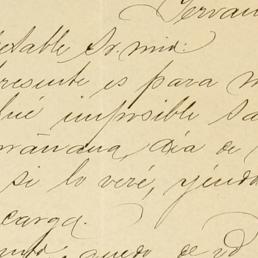 Cervan
etable Sr. mio:
resente es para m
ué imposible sa
mañana, día de
si lo veré, yendo
carga.
quedo de Vd